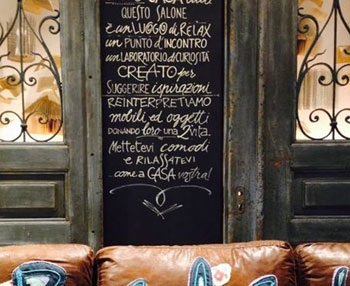 CASA
QUESTO SALONE
è un LUOGO di RELAX
un PUNTO d'INCONTRO
un LABORATORIO di CURIOSITÀ
CREATO per
SUGGERIRE ispirazioni
REINTERPRETIAMO
mobili ed oggetti
DONANDO loro una 2ª vita.
Mettetevi comodi
e RILASSATEVI
...come a CASA vostra!